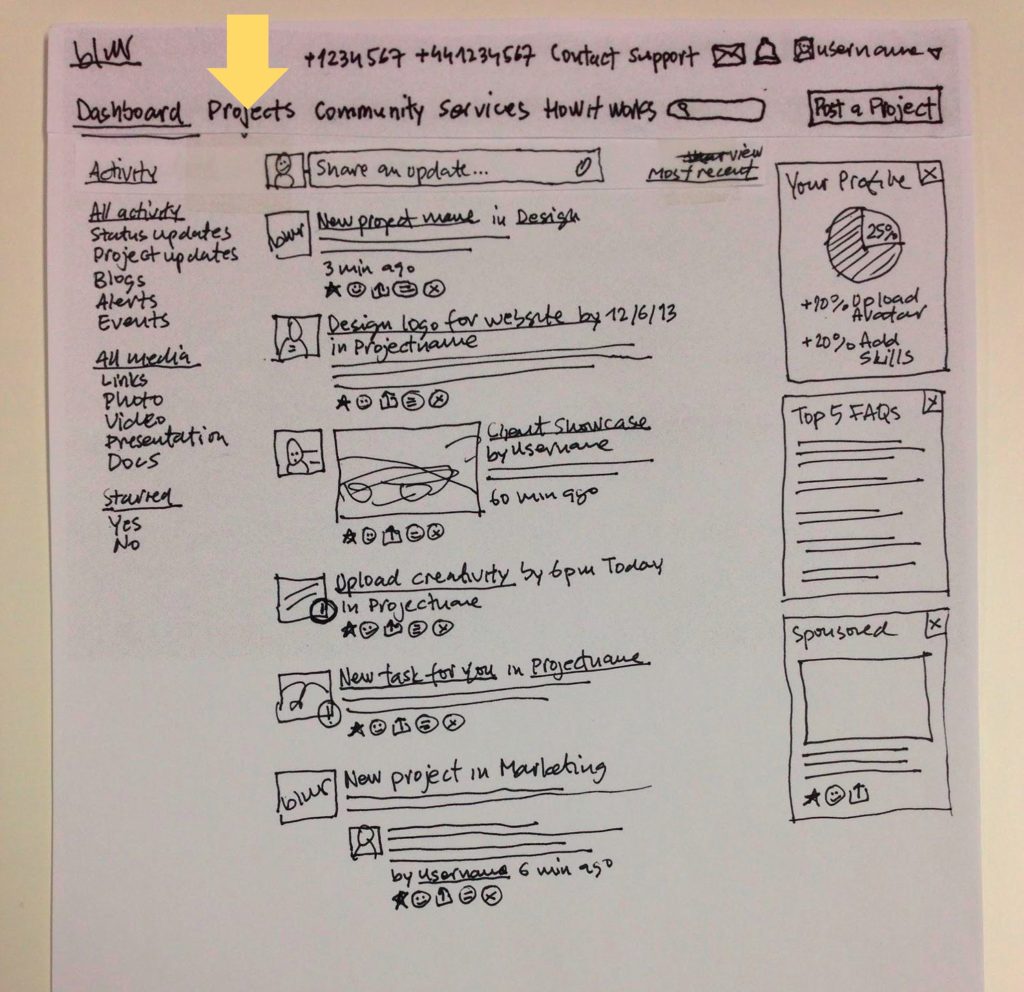 blur
+1234567 +441234567 Contact Support username
Dashboard Projects Community Services How it works Post a Project
Activity
All activity
Status updates
Project updates
Blogs
Alerts
Events
All media
Links
Photo
Video
Presentation
Docs
Starred
Yes
No
Share an update...
view
Most recent
blur
New project name in Design
3 min ago
Design logo for website by 12/6/13
in Projectname
Client Showcase
by Username
60 min ago
Upload creativity by 6pm Today
in Projectname
New task for you in Projectname
blur
New project in Marketing
by username 6 min ago
Your Profile
25%
+10% Upload
Avatar
+20% Add
Skills
Top 5 FAQs
Sponsored